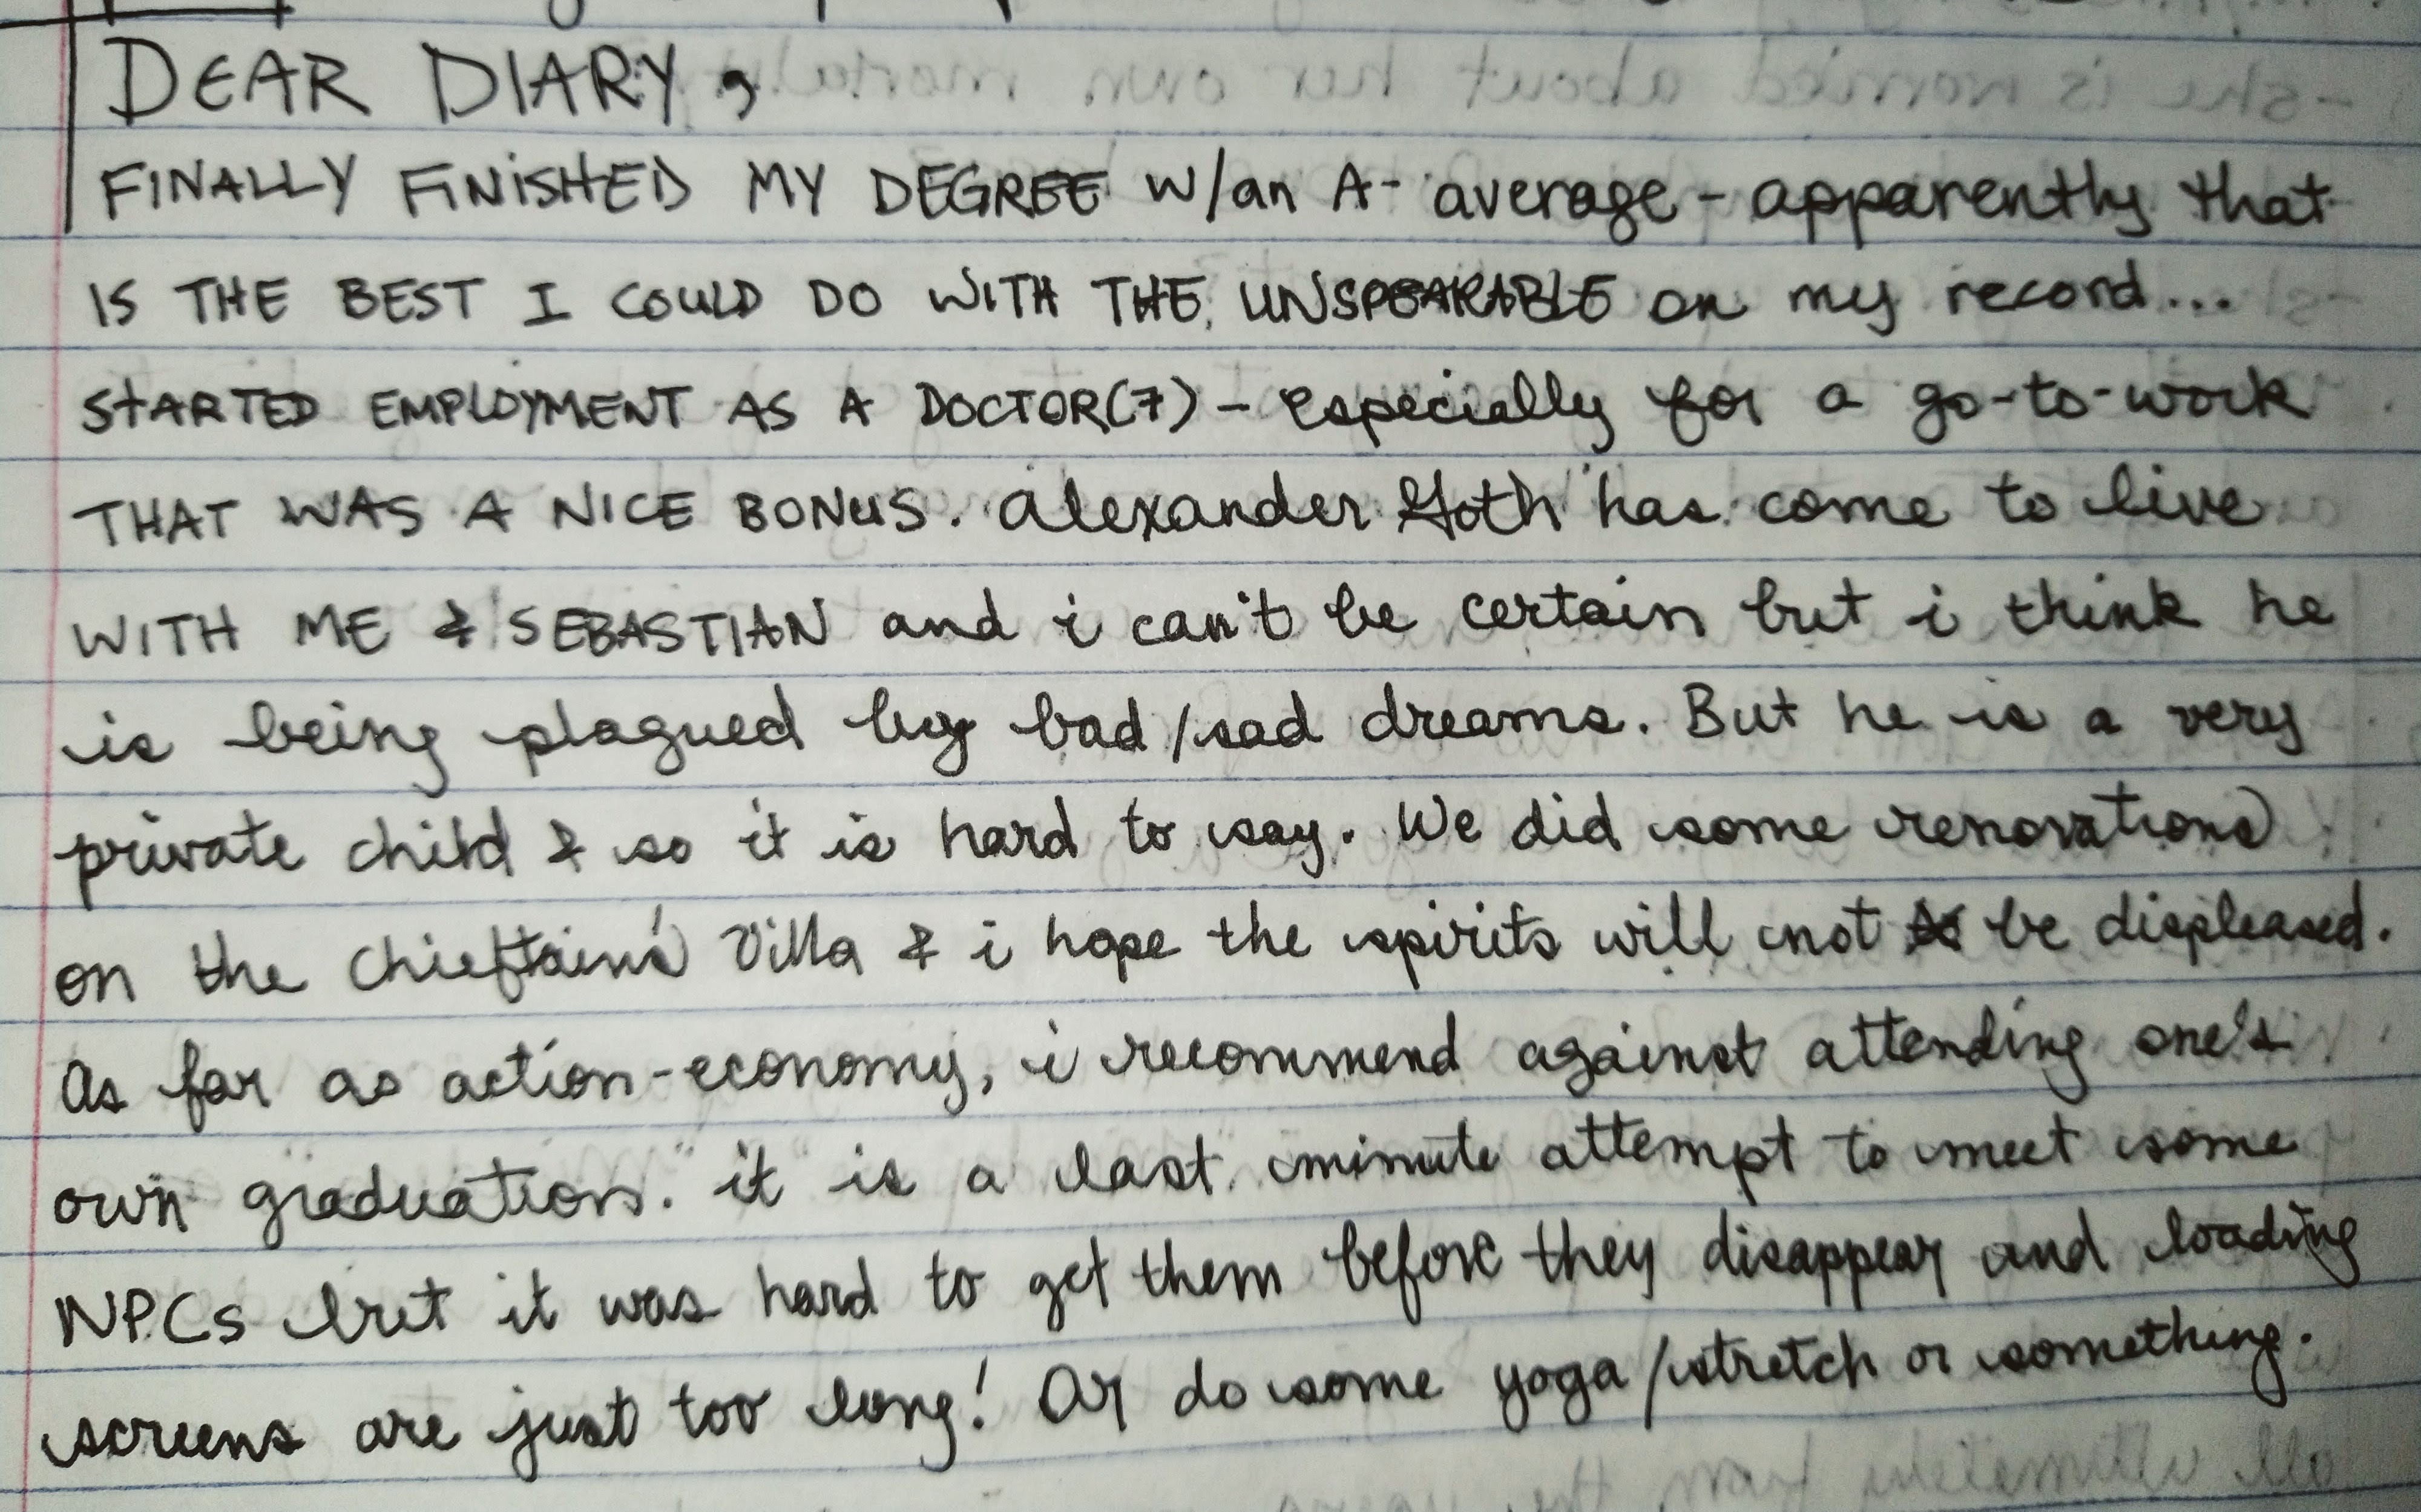 DEAR DIARY,
FINALLY FINISHED MY DEGREE w/an A- average - apparently that
IS THE BEST I COULD DO WITH THE UNSPEAKABLE on my record...
STARTED EMPLOYMENT AS A DOCTOR(7) - especially for a go-to-work
THAT WAS A NICE BONUS. Alexander Goth has come to live
WITH ME & SEBASTIAN and i can't be certain but i think he
is being plagued by bad/sad dreams. But he is a very
private child & so it is hard to say. We did some renovations
on the Chieftain's Villa & i hope the spirits will not be displeased.
As far as action-economy, i recommend against attending one's
own graduation. it is a last minute attempt to meet some
NPCs but it was hard to get them before they disappear and loading
screens are just too long! Or do some yoga/stretch or something.